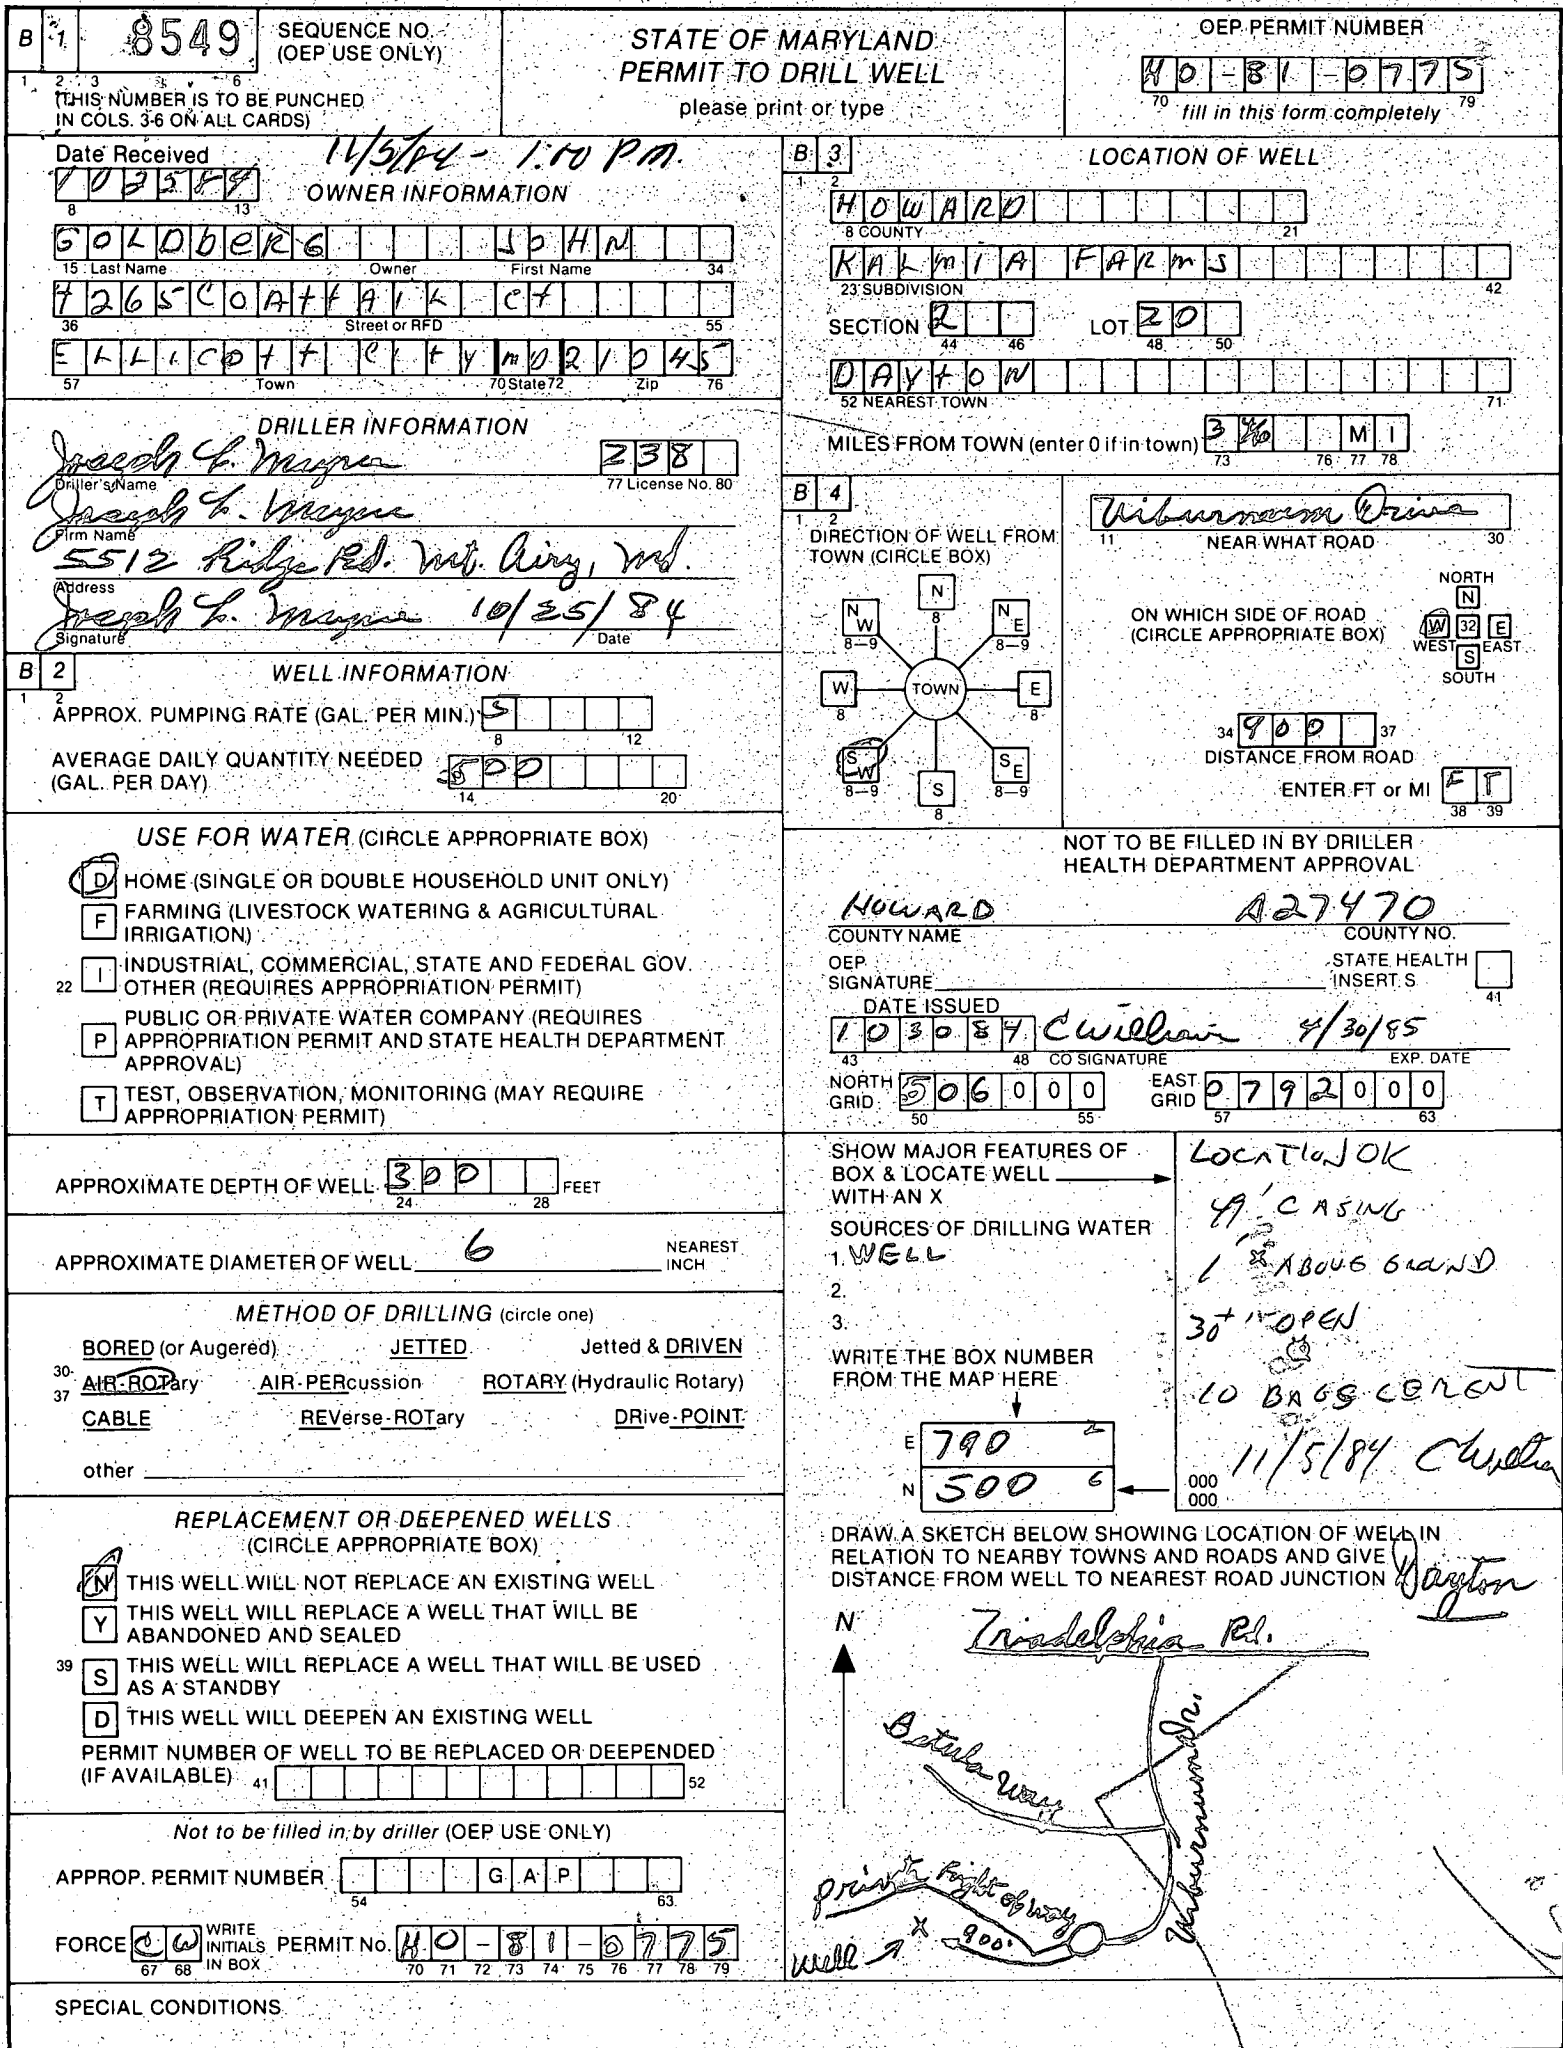 B 1 8549 SEQUENCE NO. (OEP USE ONLY)
1 2 3 6
(THIS NUMBER IS TO BE PUNCHED
IN COLS. 3-6 ON ALL CARDS)
STATE OF MARYLAND
PERMIT TO DRILL WELL
please print or type
OEP PERMIT NUMBER
HO-81-0775
70 79
fill in this form completely
Date Received 11/5/84 - 1:00 PM.
102584
8 13
OWNER INFORMATION
GOLDbERG JOHN
15 Last Name Owner First Name 34
7265 COAttAIL Ct
36 Street or RFD 55
ELLICott CIty MD 21045
57 Town 70 State 72 Zip 76
DRILLER INFORMATION
Joseph L. Mayne 238
Driller's Name 77 License No. 80
Joseph L. Mayne
Firm Name
5512 Ridge Rd. Mt. Airy, Md.
Address
Joseph L. Mayne 10/25/84
Signature Date
B 2 WELL INFORMATION
1 2
APPROX. PUMPING RATE (GAL. PER MIN.) 5
8 12
AVERAGE DAILY QUANTITY NEEDED
(GAL. PER DAY) 500
14 20
USE FOR WATER (CIRCLE APPROPRIATE BOX)
D HOME (SINGLE OR DOUBLE HOUSEHOLD UNIT ONLY)
F FARMING (LIVESTOCK WATERING & AGRICULTURAL
IRRIGATION)
22 I INDUSTRIAL, COMMERCIAL, STATE AND FEDERAL GOV.
OTHER (REQUIRES APPROPRIATION PERMIT)
P PUBLIC OR PRIVATE WATER COMPANY (REQUIRES
APPROPRIATION PERMIT AND STATE HEALTH DEPARTMENT
APPROVAL)
T TEST, OBSERVATION, MONITORING (MAY REQUIRE
APPROPRIATION PERMIT)
APPROXIMATE DEPTH OF WELL 300 FEET
24 28
APPROXIMATE DIAMETER OF WELL 6 NEAREST INCH
METHOD OF DRILLING (circle one)
BORED (or Augered) JETTED Jetted & DRIVEN
30-37 AIR-ROTary AIR-PERcussion ROTARY (Hydraulic Rotary)
CABLE REVerse-ROTary DRive-POINT
other
REPLACEMENT OR DEEPENED WELLS
(CIRCLE APPROPRIATE BOX)
N THIS WELL WILL NOT REPLACE AN EXISTING WELL
Y THIS WELL WILL REPLACE A WELL THAT WILL BE
ABANDONED AND SEALED
39 S THIS WELL WILL REPLACE A WELL THAT WILL BE USED
AS A STANDBY
D THIS WELL WILL DEEPEN AN EXISTING WELL
PERMIT NUMBER OF WELL TO BE REPLACED OR DEEPENDED
(IF AVAILABLE) 41 52
Not to be filled in by driller (OEP USE ONLY)
APPROP. PERMIT NUMBER GAP
54 63
FORCE CW WRITE INITIALS IN BOX PERMIT No. HO-81-0775
67 68 70 71 72 73 74 75 76 77 78 79
SPECIAL CONDITIONS
B 3 LOCATION OF WELL
1 2
HOWARD
8 COUNTY 21
KALMIA FARMS
23 SUBDIVISION 42
SECTION 2 LOT 20
44 46 48 50
DAYtON
52 NEAREST TOWN 71
MILES FROM TOWN (enter 0 if in town) 3 MI
73 76 77 78
B 4
1 2
DIRECTION OF WELL FROM
TOWN (CIRCLE BOX)
N
8
NW NE
8-9 8-9
W TOWN E
8 8
SW SE
8-9 8-9
S
8
Viburnum Drive
11 NEAR WHAT ROAD 30
ON WHICH SIDE OF ROAD
(CIRCLE APPROPRIATE BOX)
NORTH
N
W 32 E
WEST EAST
S
SOUTH
34 900 37
DISTANCE FROM ROAD
ENTER FT or MI FT
38 39
NOT TO BE FILLED IN BY DRILLER
HEALTH DEPARTMENT APPROVAL
HOWARD A27470
COUNTY NAME COUNTY NO.
OEP SIGNATURE STATE HEALTH INSERT S
41
DATE ISSUED
103084 CWilliam 4/30/85
43 48 CO SIGNATURE EXP. DATE
NORTH GRID 506000 EAST GRID 0792000
50 55 57 63
SHOW MAJOR FEATURES OF
BOX & LOCATE WELL
WITH AN X
SOURCES OF DRILLING WATER
1. WELL
2.
3.
WRITE THE BOX NUMBER
FROM THE MAP HERE
E 790 2
N 500 6
000
000
LOCATION OK
49' CASING
1' ABOVE GROUND
30+' OPEN
10 BAGS CEMENT
11/5/84
DRAW A SKETCH BELOW SHOWING LOCATION OF WELL IN
RELATION TO NEARBY TOWNS AND ROADS AND GIVE
DISTANCE FROM WELL TO NEAREST ROAD JUNCTION
Dayton
N
Triadelphia Rd.
Betula Way
Viburnum Dr.
private Right of way
X
900'
well